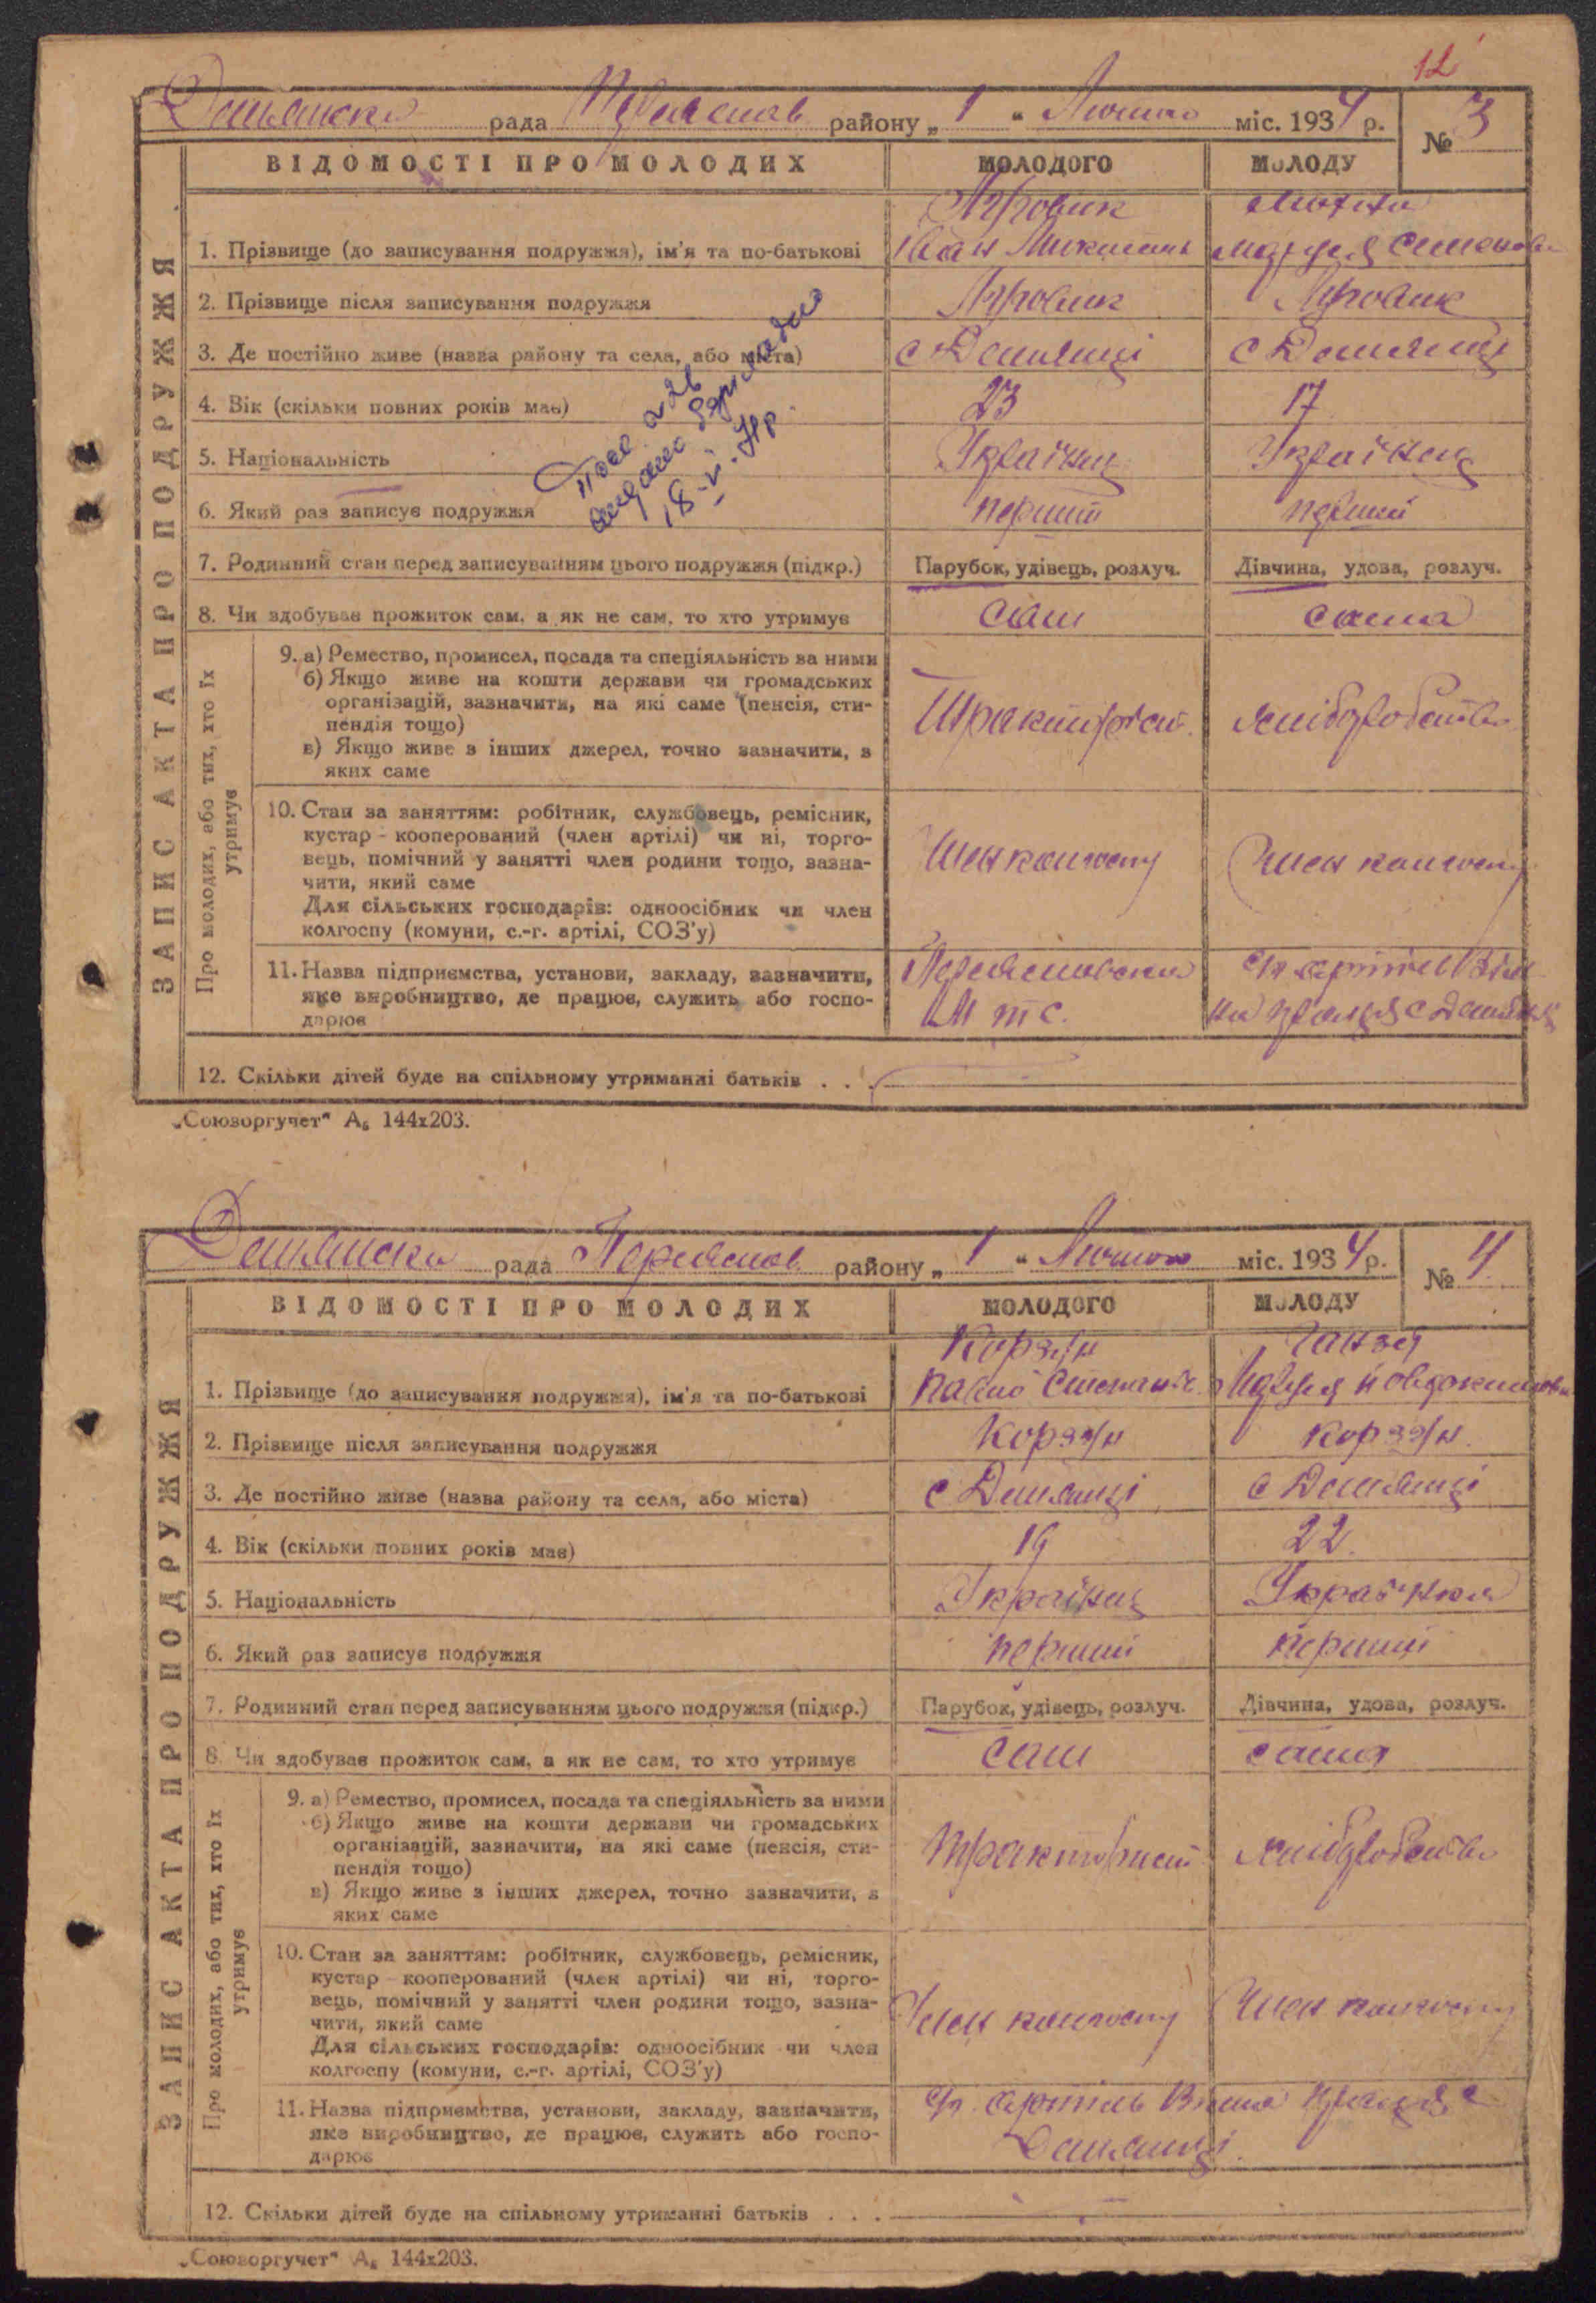 12
Демянська рада Переяслав району „ 1 “ Лютого міс. 1934 р.
№ 3
ВІДОМОСТІ ПРО МОЛОДИХ МОЛОДОГО МОЛОДУ
ЗАПИС АКТА ПРО ПОДРУЖЖЯ
1. Прізвище (до записування подружжя), ім'я та по-батькові
Іван Семенов
2. Прізвище після записування подружжя
3. Де постійно живе (назва району та села, або міста) с Демянці с Демянці
4. Вік (скільки повних років має) 23 17
5. Національність Українец Українец
6. Який раз записує подружжя перший перший
18-VI
7. Родинний стан перед записуванням цього подружжя (підкр.) Парубок, удівець, розлуч. Дівчина, удова, розлуч.
8. Чи здобуває прожиток сам, а як не сам, то хто утримує сам сама
Про молодих, або тих, хто їх утримує
9. а) Ремество, промисел, посада та спеціяльність за ними
б) Якщо живе на кошти держави чи громадських
організацій, зазначити, на які саме (пенсія, сти-
пендія тощо)
в) Якщо живе з інших джерел, точно зазначити, з
яких саме
Тракторист хліборобство
10. Стан за заняттям: робітник, службовець, ремісник,
кустар - кооперований (член артілі) чи ні, торго-
вець, помічний у занятті член родини тощо, зазна-
чити, який саме
Для сільських господарів: одноосібник чи член
колгоспу (комуни, с.-г. артілі, СОЗ'у)
Член колгоспу Член колгоспу
11. Назва підприємства, установи, закладу, зазначити,
яке виробництво, де працює, служить або госпо-
дарює
Переяславська
МТС.
12. Скільки дітей буде на спільному утриманні батьків . . .
„Союзоргучет“ А₆ 144х203.
Демянська рада Переяслав району „ 1 “ Лютого міс. 1934 р.
№ 4
ВІДОМОСТІ ПРО МОЛОДИХ МОЛОДОГО МОЛОДУ
ЗАПИС АКТА ПРО ПОДРУЖЖЯ
Корзун Ганзя
1. Прізвище (до записування подружжя), ім'я та по-батькові
Павло Степанов
2. Прізвище після записування подружжя Корзун Корзун
3. Де постійно живе (назва району та села, або міста) с Демянці с Демянці
4. Вік (скільки повних років має) 19 22
5. Національність Українец Українка
6. Який раз записує подружжя перший перший
7. Родинний стан перед записуванням цього подружжя (підкр.) Парубок, удівець, розлуч. Дівчина, удова, розлуч.
8. Чи здобуває прожиток сам, а як не сам, то хто утримує сам сама
Про молодих, або тих, хто їх утримує
9. а) Ремество, промисел, посада та спеціяльність за ними
б) Якщо живе на кошти держави чи громадських
організацій, зазначити, на які саме (пенсія, сти-
пендія тощо)
в) Якщо живе з інших джерел, точно зазначити, з
яких саме
тракторист хліборобство
10. Стан за заняттям: робітник, службовець, ремісник,
кустар - кооперований (член артілі) чи ні, торго-
вець, помічний у занятті член родини тощо, зазна-
чити, який саме
Для сільських господарів: одноосібник чи член
колгоспу (комуни, с.-г. артілі, СОЗ'у)
Член колгоспу Член колгоспу
11. Назва підприємства, установи, закладу, зазначити,
яке виробництво, де працює, служить або госпо-
дарює
артіль Вільна праця с
Демянці.
12. Скільки дітей буде на спільному утриманні батьків . . .
„Союзоргучет“ А₆ 144х203.